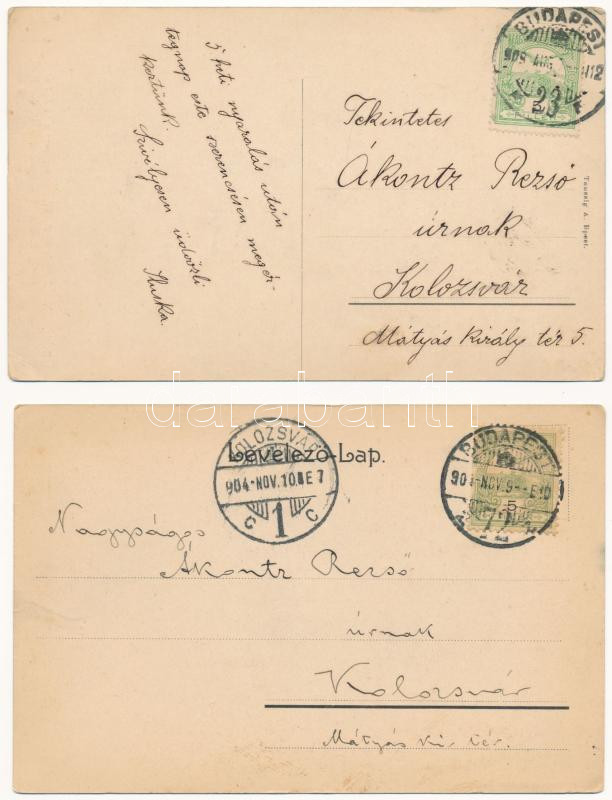 BUDAPEST
909 AUG.
23
5
5 heti nyaralás után
tegnap este szerencsésen megér-
keztünk.
Szivélyesen üdvözli
Iluska.
Tekintetes
Ákontz Rezső
úrnak
Kolozsvár
Mátyás király tér 5.
Taussig A. Bpest.
darabanth
Levelező-Lap.
KOLOZSVÁR
904-NOV.10. E 7
C 1 C
BUDAPEST
904-NOV.9--E10
72
5
Nagyságos
Ákontz Rezső
úrnak
Kolozsvár
Mátyás kir. tér.